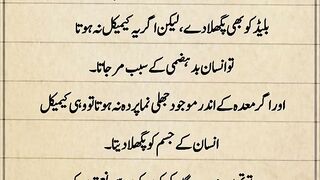 بلیڈ کو بھی پگھلا دے، لیکن اگر یہ کیمیکل نہ ہوتا
تو انسان بد ہضمی کے سبب مر جاتا۔
اور اگر معدہ کے اندر موجود جھلی نما پردہ نہ ہوتا تو وہی کیمیکل
انسان کے جسم کو پگھلا دیتا۔